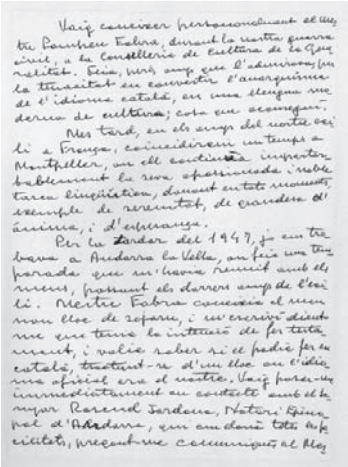 Vaig conèixer personalment el Mes-
tre Pompeu Fabra, durant la nostra guerra
civil, a la Conselleria de Cultura de la Gene-
ralitat. Feia, però, anys que l'admirava, per
la tenacitat en convertir l'anarquisme
de l'idioma català, en una llengua mo-
derna de cultura; cosa que aconseguí.
Mes tard, en els anys del nostre exi-
li a França, coincidirem un temps a
Montpeller, on ell continuà impertor-
bablement la seva apassionada i noble
tasca lingüística, donant en tots moments,
exemple de serenitat, de grandesa d'
ànima, i d'esperança.
Per la tardor del 1947, jo em tro-
bava a Andorra la Vella, on feia una tem-
porada que m'havia reunit amb els
meus, passant els darrers anys de l'exi-
li. Mestre Fabra coneixia el meu
nou lloc de sojorn, i m'escrivi dient
me que tenia la intenció de fer testa-
ment, i volia saber si el podia fer en
català, tractant-se d'un lloc on l'idio-
ma oficial era el nostre. Vaig posar-me
immediatament en contacte amb el se-
nyor Rosend Jordana, Notari Episco-
pal d'Andorra, qui em donà totes les fa-
cilitats, pregant-me comuniqués al Mes